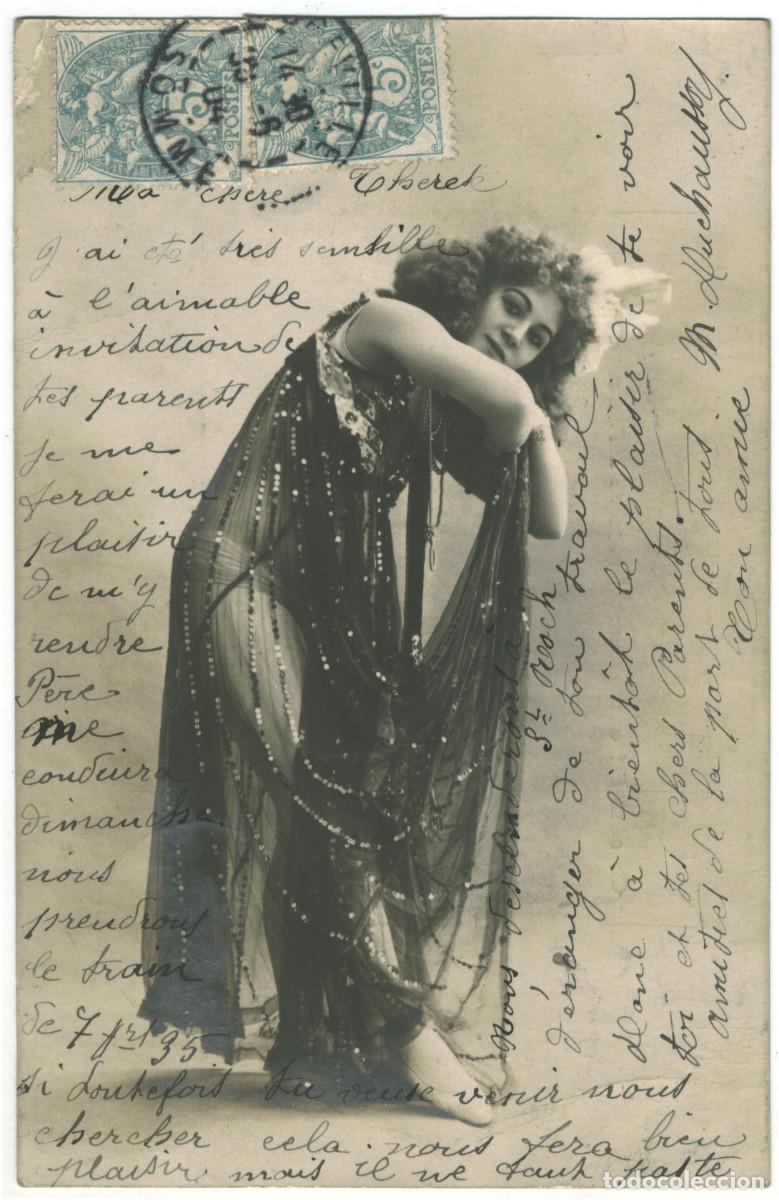 FRANÇAISE
5
POSTES
5
POSTES
14 30
5 -6
04
SOMME
Ma chère
J'ai été très sensible
à l'aimable
invitation de
tes parents
je me
ferai un
plaisir
de m'y
rendre
Père
me
conduira
dimanche.
nous
prendrons
le train
de 7 hrs 35
si toutefois tu veuse venir nous
chercher cela nous fera bien
plaisir mais il ne faut pas te
déranger de ton travail
Nous descenderont à
St Roch
donc à bientôt le plaisir de te voir
toi et tes chers Parents.
amitiés de la part de tous.
Ton amie M. Duchaussoy.
todocoleccion